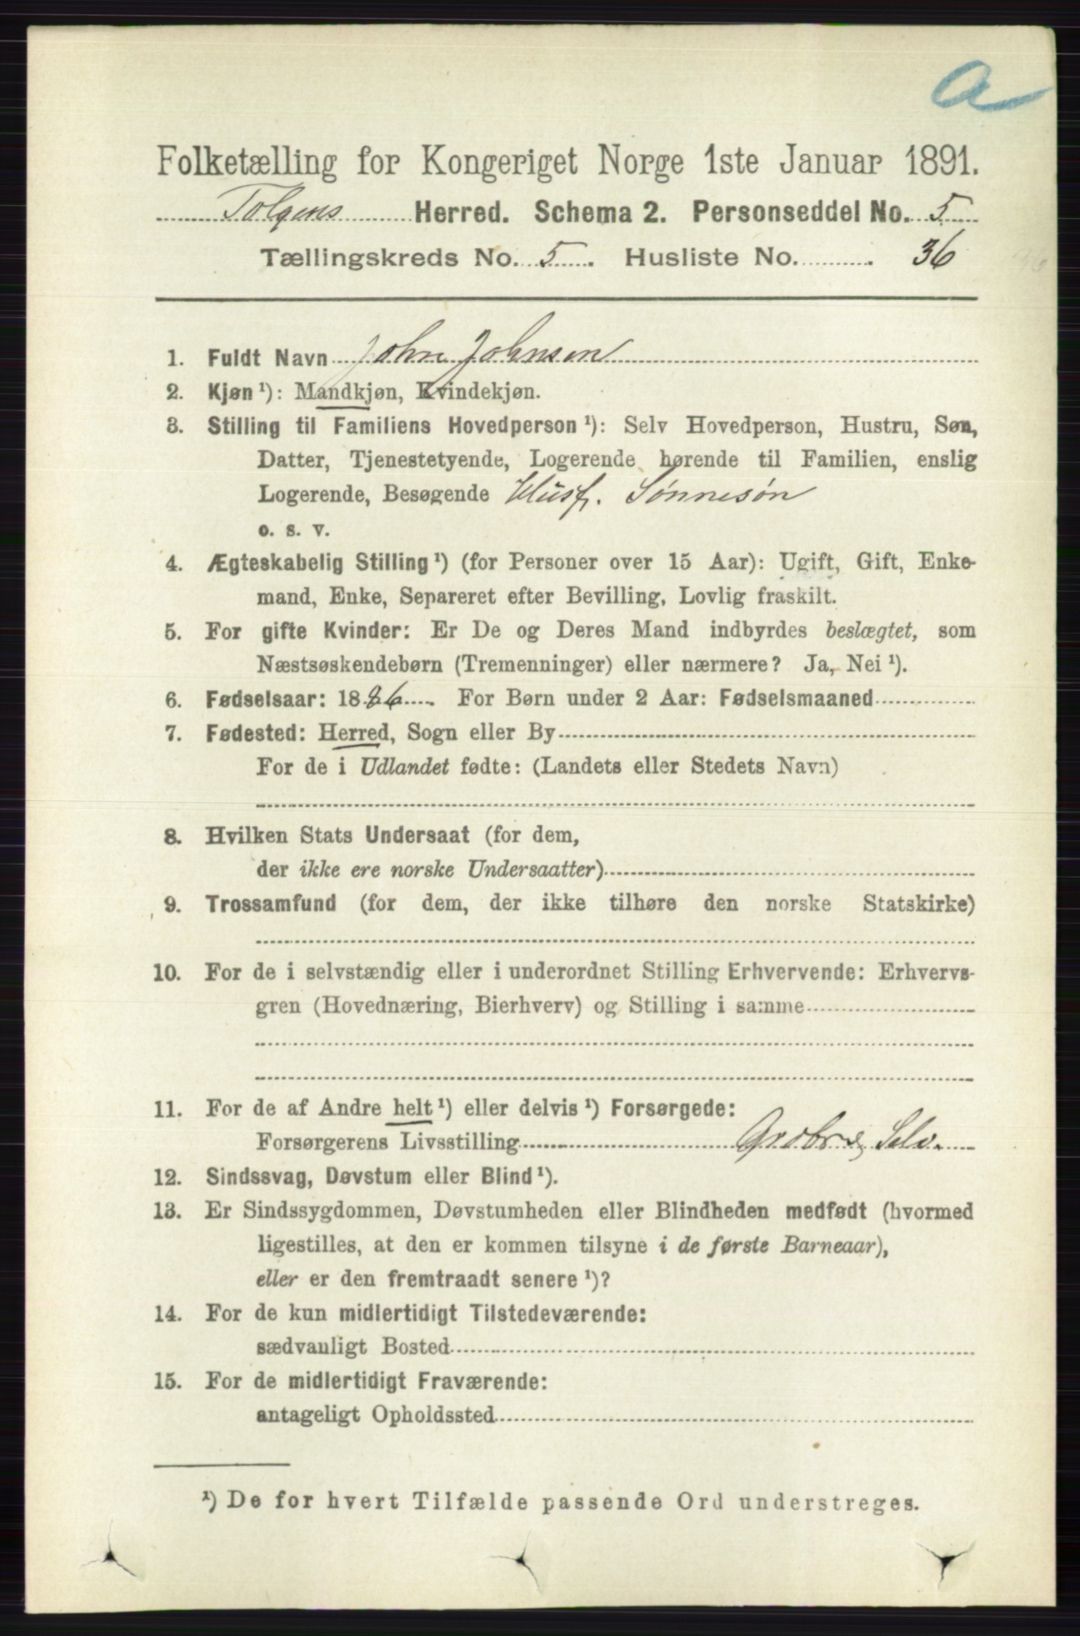 a
Folketælling for Kongeriget Norge 1ste Januar 1891.
Tolgens Herred. Schema 2. Personseddel No. 5
Tællingskreds No. 5. Husliste No. 36
1. Fuldt Navn John Johnsen
2. Kjøn ¹): Mandkjøn, Kvindekjøn.
3. Stilling til Familiens Hovedperson ¹): Selv Hovedperson, Hustru, Søn,
Datter, Tjenestetyende, Logerende hørende til Familien, enslig
Logerende, Besøgende Husf. Sønnesøn
o. s. v.
4. Ægteskabelig Stilling ¹) (for Personer over 15 Aar): Ugift, Gift, Enke-
mand, Enke, Separeret efter Bevilling, Lovlig fraskilt.
5. For gifte Kvinder: Er De og Deres Mand indbyrdes beslægtet, som
Næstsøskendebørn (Tremenninger) eller nærmere? Ja, Nei ¹).
6. Fødselsaar: 1886. For Børn under 2 Aar: Fødselsmaaned
7. Fødested: Herred, Sogn eller By
For de i Udlandet fødte: (Landets eller Stedets Navn)
8. Hvilken Stats Undersaat (for dem,
der ikke ere norske Undersaatter)
9. Trossamfund (for dem, der ikke tilhøre den norske Statskirke)
10. For de i selvstændig eller i underordnet Stilling Erhvervende: Erhvervs-
gren (Hovednæring, Bierhverv) og Stilling i samme
11. For de af Andre helt ¹) eller delvis ¹) Forsørgede:
Forsørgerens Livsstilling Grdbr. Selv.
12. Sindssvag, Døvstum eller Blind ¹).
13. Er Sindssygdommen, Døvstumheden eller Blindheden medfødt (hvormed
ligestilles, at den er kommen tilsyne i de første Barneaar),
eller er den fremtraadt senere ¹)?
14. For de kun midlertidigt Tilstedeværende:
sædvanligt Bosted
15. For de midlertidigt Fraværende:
antageligt Opholdssted
¹) De for hvert Tilfælde passende Ord understreges.